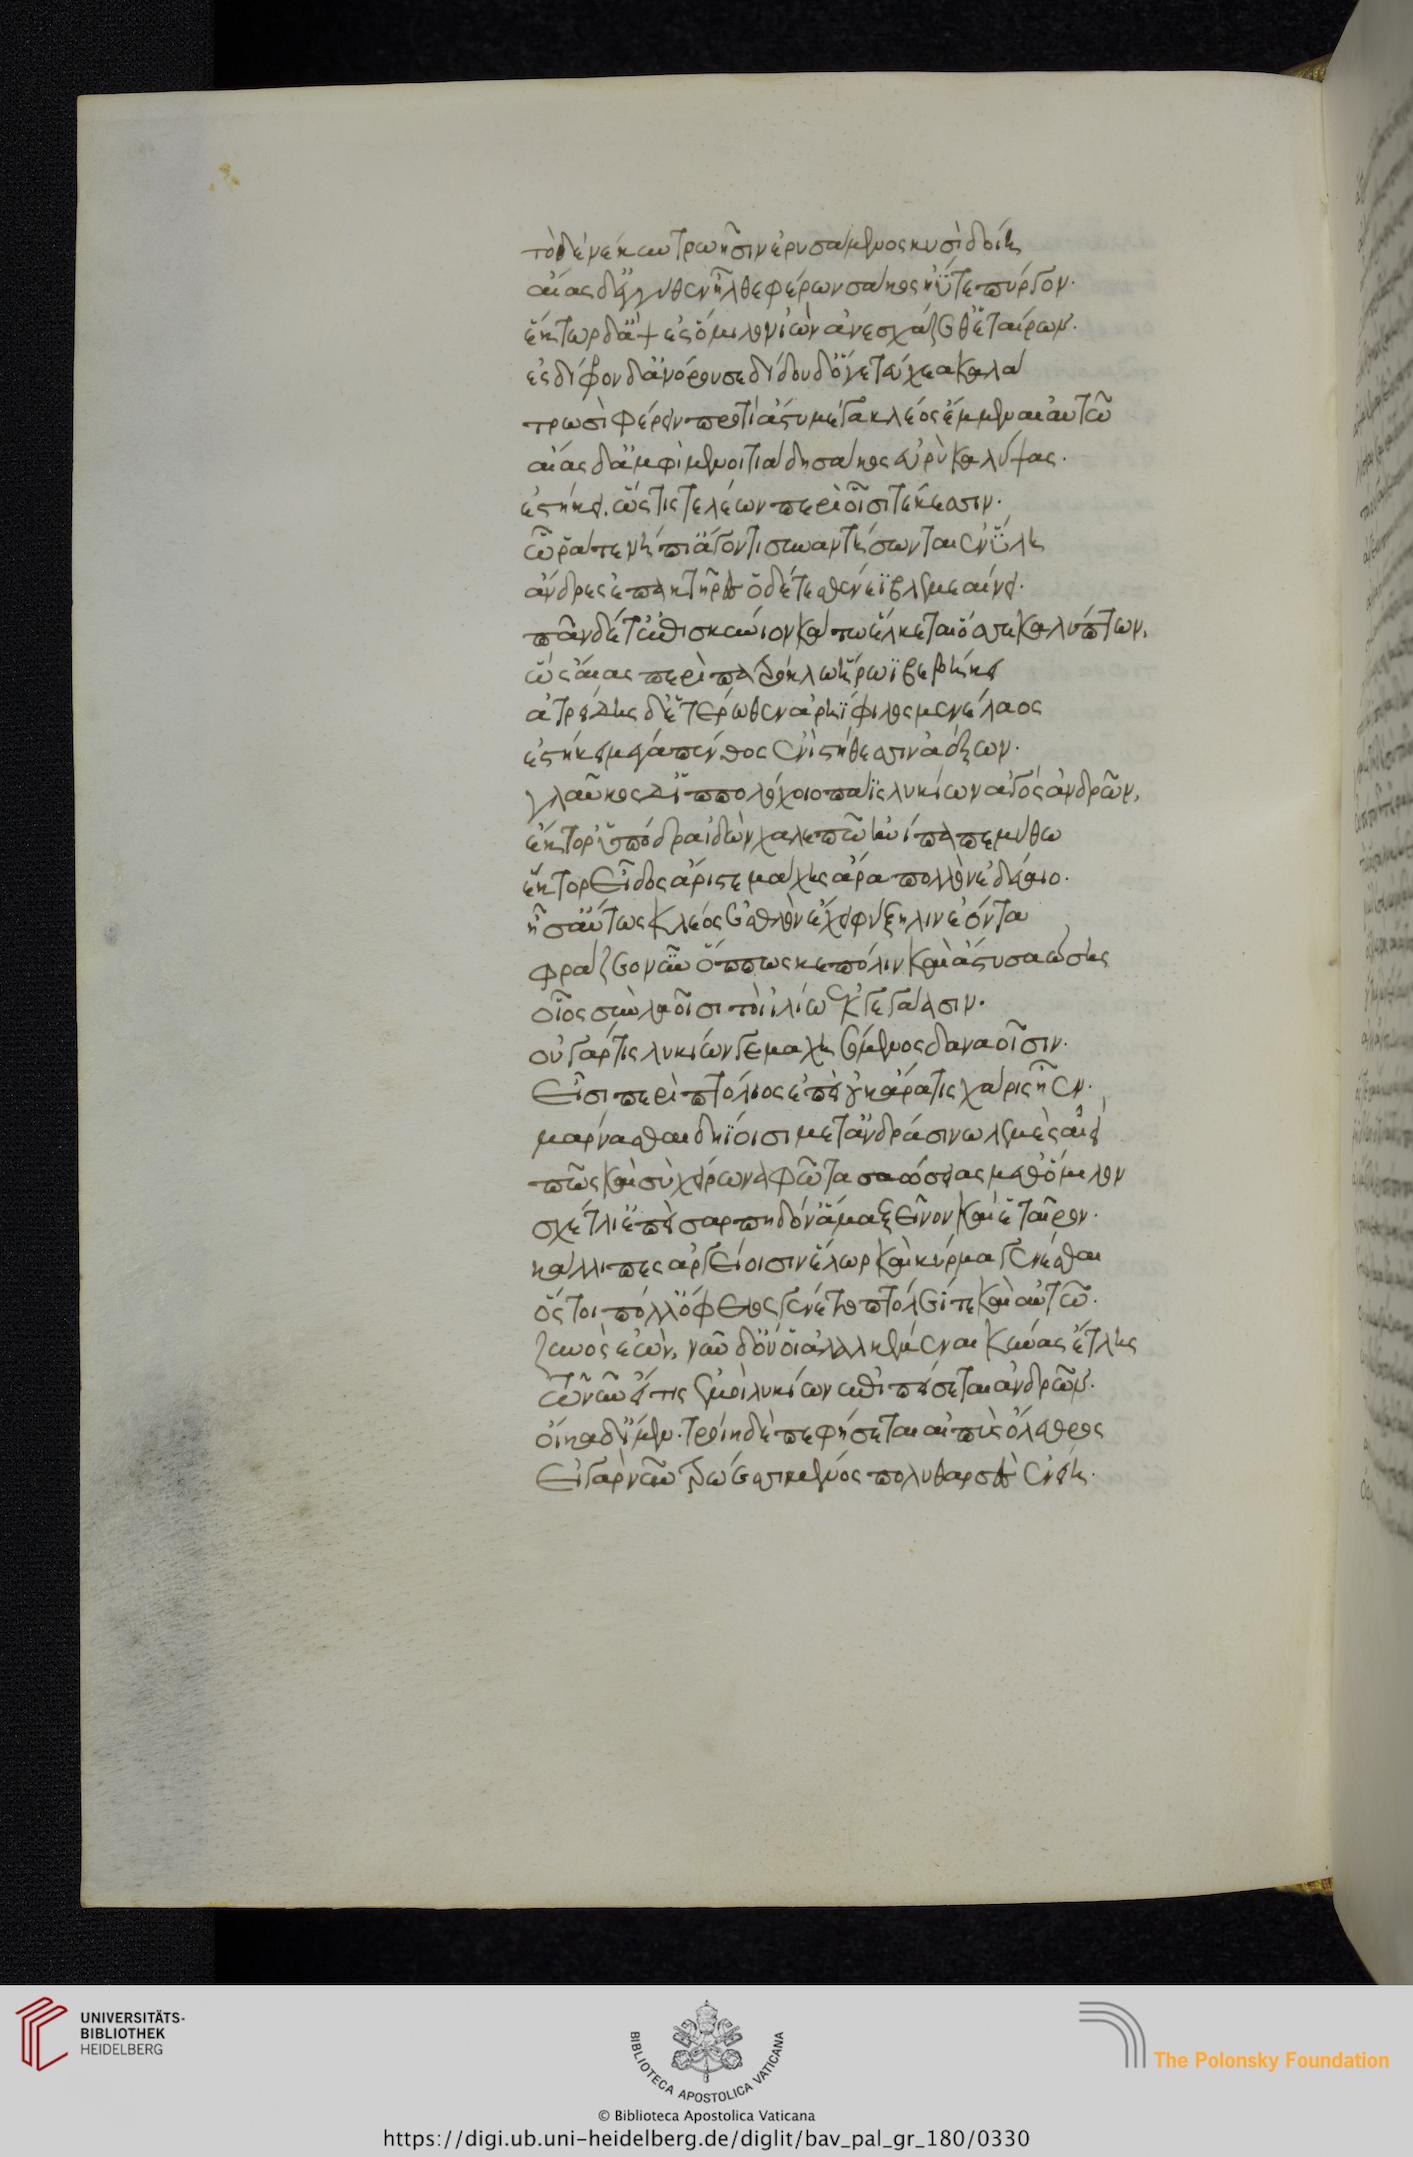 τὸν δὲ νέκυν τρωῆσιν ἐρυσάμενος κυσὶ δοίη
αἴας δ' ἐγγύθεν ἦλθε φέρων σάκος ἠΰτε πύργον.
ἕκτωρ δ' ἂψ ἐς ὅμιλον ἰὼν ἀνεσχάζεθ' ἑταίρων.
ἐς δίφρον δ' ἀνόρουσε δίδου δ' ὅγε τεύχεα καλά
τρωσὶ φέρειν προτὶ ἄστυ μέγα κλέος ἔμμεναι αὐτῶ
αἴας δ' ἀμφὶ μενοιτιάδη σάκος εὐρὺ καλύψας.
ἑστήκει. ὥς τίς τε λέων περὶ οἷσι τέκεσσιν.
ὧ ῥά τε νήπι' ἄγοντι συναντήσωνται ἐν ὕλη
ἄνδρες ἐπακτῆρες ὁ δέ τε σθένεϊ βλεμεαίνει.
πᾶν δέ τ' ἐπισκύνιον κάτω ἕλκεται ὄσσε καλύπτων.
ὣς αἴας περὶ πατρόκλω ἥρωϊ βεβήκει
ἀτρείδης δ' ἑτέρωθεν ἀρηΐφιλος μενέλαος
ἑστήκει μέγα πένθος ἐνὶ στήθεσσιν ἀέξων.
γλαῦκος δ' ἱππολόχοιο παϊς λυκίων ἀγὸς ἀνδρῶν,
ἕκτορ' ὑπόδρα ἰδὼν χαλεπῶ ἠνίπαπε μύθω
ἕκτορ εἶδος ἄριστε μάχης ἄρα πολλὸν ἐδεύεο.
ἦ σ' αὕτως κλέος ἐσθλὸν ἔχει φύξηλιν ἐόντα
φράζεο νῦν ὅππως κε πόλιν καὶ ἄστυ σαώσης
οἶος σὺν λαοῖσι τοὶ ἰλίω ἐκγεγάασιν.
οὐ γάρ τις λυκίων γε μαχησόμενος δαναοῖσιν.
εἶσι περὶ πτόλιος ἐπεὶ οὐκ ἄρα τις χάρις ἦεν.
μάρνασθαι δηΐοισι μετ' ἀνδράσι νωλεμὲς αἰεὶ
πῶς καὶ σὺ χείρωνα φῶτα σαώσειας μεθ' ὅμιλον
σχέτλι' ἐπεὶ σαρπηδόν' ἅμα ξεῖνον καὶ ἑταῖρον.
κάλλιπες ἀργείοισιν ἕλωρ καὶ κύρμα γενέσθαι
ὅς τοι πόλλ' ὄφελος γένετο πτόλεΐ τε καὶ αὐτῶ.
ζωὸς ἐὼν, νῦν δ' οὔ οἱ ἀλαλκέμεναι κύνας ἔτλης
τῶ νῦν εἴ τις ἐμοὶ λυκίων ἐπιπείσεται ἀνδρῶν.
οἴκαδ' ἴμεν. τροίη δὲ πεφήσεται αἰπὺς ὄλεθρος
εἰ γὰρ νῦν τρώεσσι μένος πολυθαρσὲς ἐνείη.
UNIVERSITÄTS-
BIBLIOTHEK
HEIDELBERG
BIBLIOTECA APOSTOLICA VATICANA
The Polonsky Foundation
© Biblioteca Apostolica Vaticana
https://digi.ub.uni-heidelberg.de/diglit/bav_pal_gr_180/0330